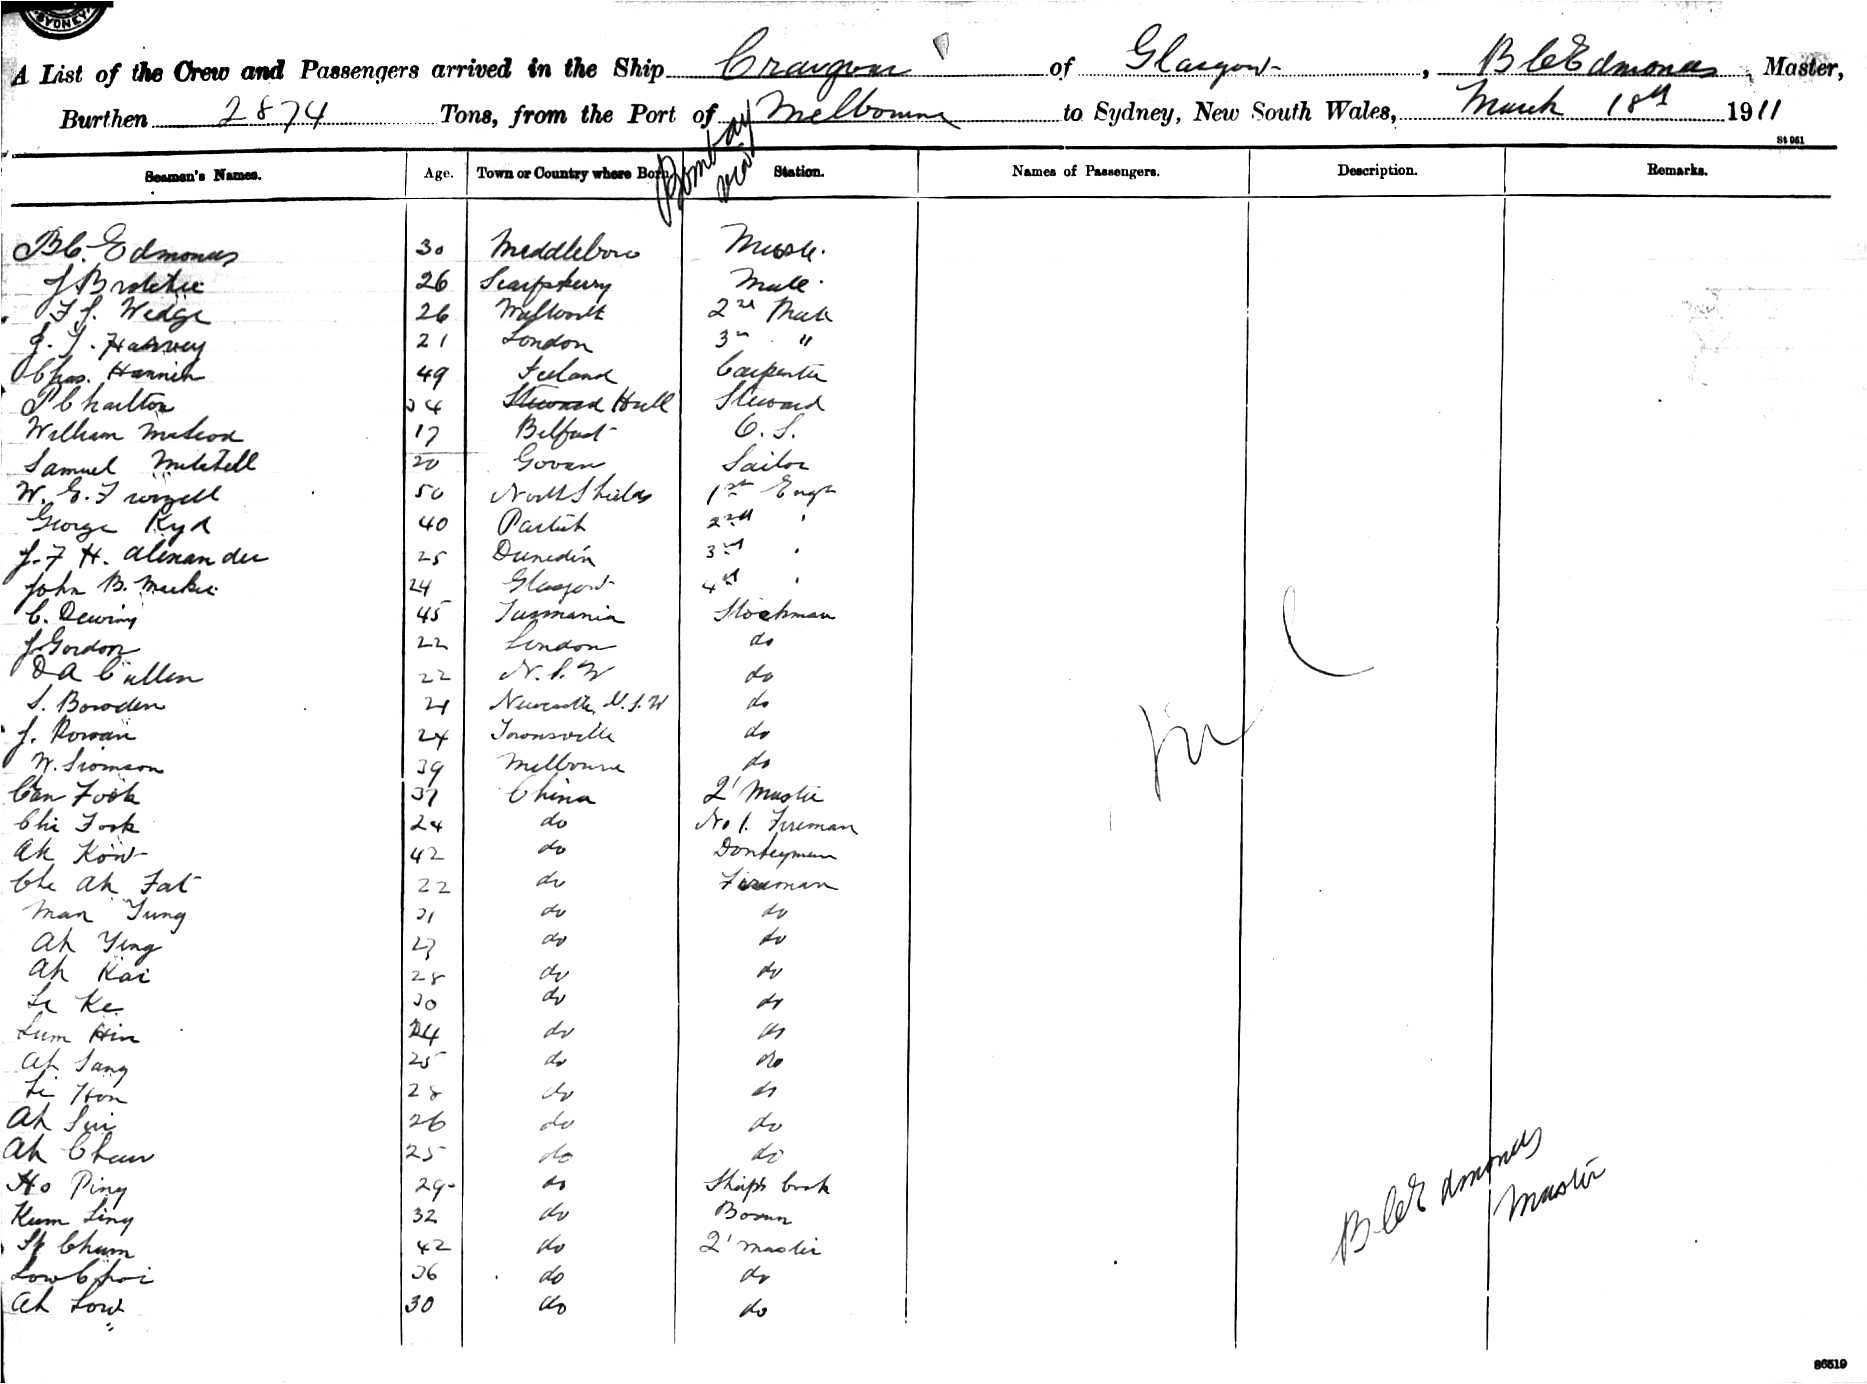 SYDNEY
A List of the Crew and Passengers arrived in the Ship Craigvar of Glasgow, B C Edmonds, Master,
Burthen 2874 Tons, from the Port of Bombay via Melbourne to Sydney, New South Wales, March 18th 1911
St 961
Seamen's Names. Age. Town or Country where Born. Station. Names of Passengers. Description. Remarks.
B C. Edmonds 30 Middlesboro Master.
J Brotchie 26 Scarfskerry Mate.
F. S. Wedge 26 Walworth 2nd Mate
J. Harvey 21 London 3rd "
Chas. Hannien 49 Carpenter
P Charlton 34 Steward Hull Steward
William McLeod 17 Belfast O.S.
Samuel Mitchell 20 Govan Sailor
W. G. 50 North Shields 1st Engr
George Kyd 40 Partick 2nd "
J. F H. Alexander 25 Dunedin 3rd "
John B. Mackie 24 Glasgow 4th "
C. Dewing 45 Tasmania Stockman
J Gordon 22 London do
D A Cullen 22 N.S.W do
S. Bowden 21 Newcastle, N.S.W do
J. Rowan 24 Townsville do
W. Siomson 39 Melbourne do
Can Fook 37 China Q' Master
Chi Fook 24 do No 1. Fireman
Ah Kow 42 do Donkeyman
Che Ah Fat 22 do Fireman
Man Yung 31 do do
Ah Ying 27 do do
Ah Kai 28 do do
Li Ke 30 do do
Lum Hin 24 do do
Ah Sang 25 do do
Li Hon 28 do do
Ah Sui 26 do do
Ah Chew 25 do do
Ho Ping 29 do Ship's Cook
Kum Ling 32 do Bosun
Chum 42 do Q' Master
Low Choi 36 do do
Ah Low 30 do do
B C Edmonds
Master
86519